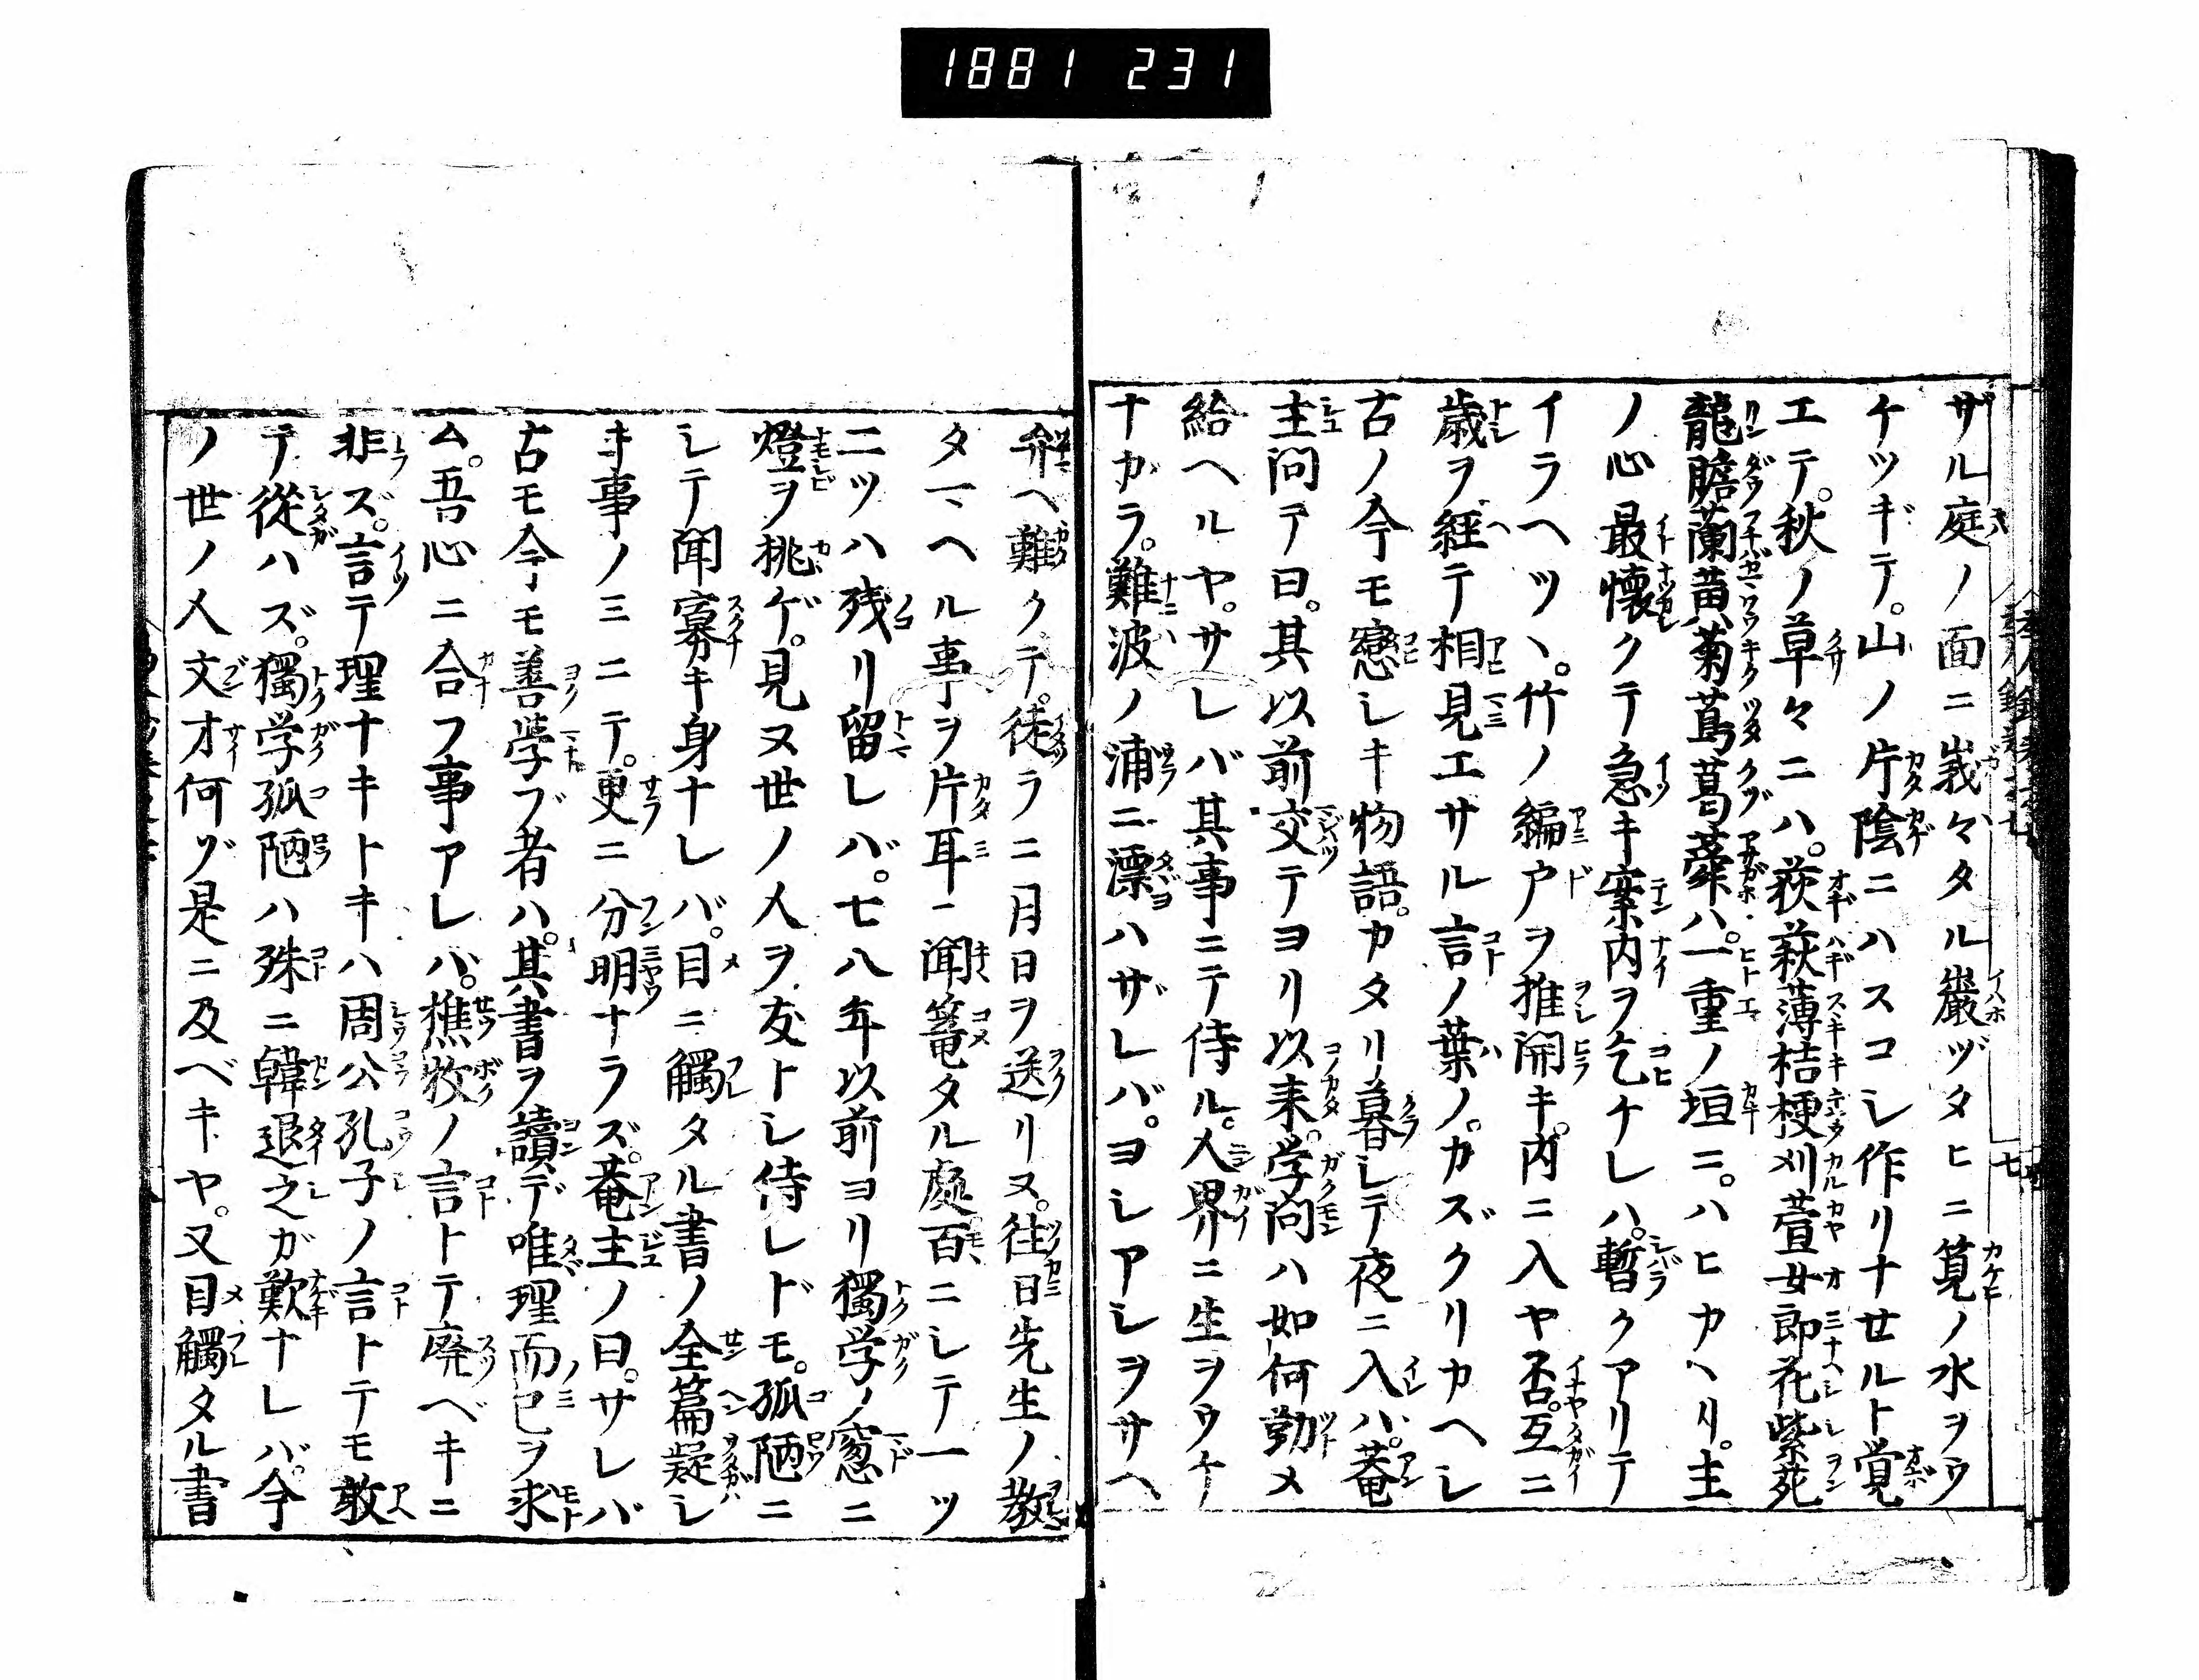 1881 231
ザル庭ノ面ニ峩々タル巖ヅタヒニ筧ノ水ヲウ
ケツギテ。山ノ片陰ニハスコシ作リナセルト覚
エテ。秋ノ草々ニハ。荻萩薄桔梗刈萱女郎花紫苑
龍膽蘭黄菊蔦葛蕣ハ。一重ノ垣ニ。ハヒカヘリ。主
ノ心最懐クテ急キ案内ヲ乞ケレハ。暫クアリテ
イラヘツヽ。竹ノ編戸ヲ推開キ。内ニ入ヤ否。互ニ
歳ヲ経テ相見エサル言ノ葉ノ。カズクリカヘシ
古ノ今モ戀シキ物語。カタリ暮シテ夜ニ入ハ。菴
主問テ曰。其以前交テヨリ以来。学問ハ如何勤メ
給ヘルヤ。サレバ其事ニテ侍ル。人界ニ生ヲウケ
ナガラ。難波ノ浦ニ漂ハザレバ。ヨシアシヲサヘ
辨ヘ難クテ。徒ラニ月日ヲ送リヌ。往日先生ノ教
タマヘル事ヲ片耳ニ聞篭タル處百ニシテ一ツ
二ツハ残リ留レバ。七八年以前ヨリ獨学ノ窓ニ
燈ヲ挑ゲ。見ヌ世ノ人ヲ友トシ侍レドモ。孤陋ニ
シテ聞寡キ身ナレバ。目ニ觸タル書ノ全篇疑シ
キ事ノミニテ。更ニ分明ナラズ。菴主ノ曰。サレバ
古モ今モ善学ブ者ハ。其書ヲ讀デ唯理而已ヲ求
ム。吾心ニ合フ事アレバ。樵牧ノ言トテ廃ベキニ
非ズ。言テ理ナキトキハ周公孔子ノ言トテモ敢
テ從ハズ。獨学孤陋ハ殊ニ韓退之ガ歎ナレバ。今
ノ世ノ人文才何ゾ是ニ及ベキヤ。又目觸タル書